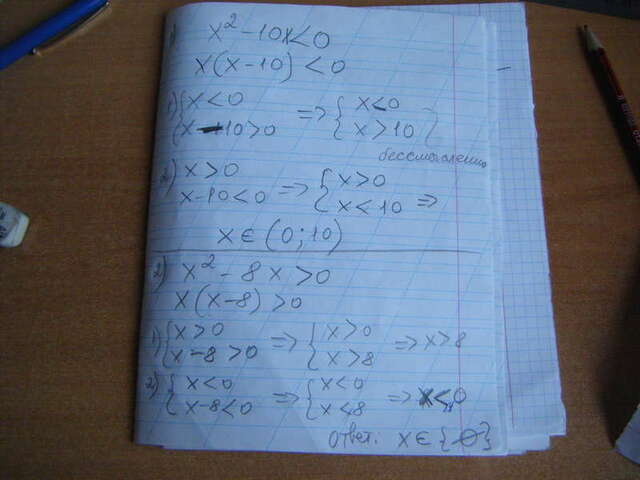 x² - 10x < 0
x(x-10) < 0
1) { x < 0 => { x < 0
{ x - 10 > 0 { x > 10 }
бессмысленно
2) x > 0 => { x > 0
x - 10 < 0 { x < 10 =>
x ∈ (0; 10)
2) x² - 8x > 0
x(x-8) > 0
1) { x > 0 => { x > 0 => x > 8
{ x - 8 > 0 { x > 8
2) { x < 0 => { x < 0 => x < 0
{ x - 8 < 0 { x < 8
Ответ: x ∈ {0}